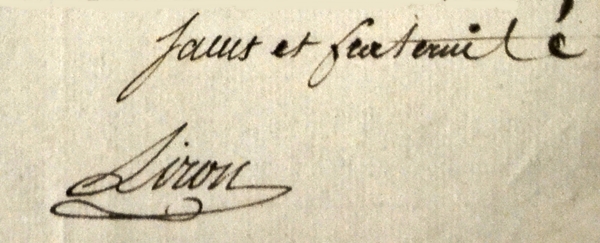 salus et fraternité
Liron